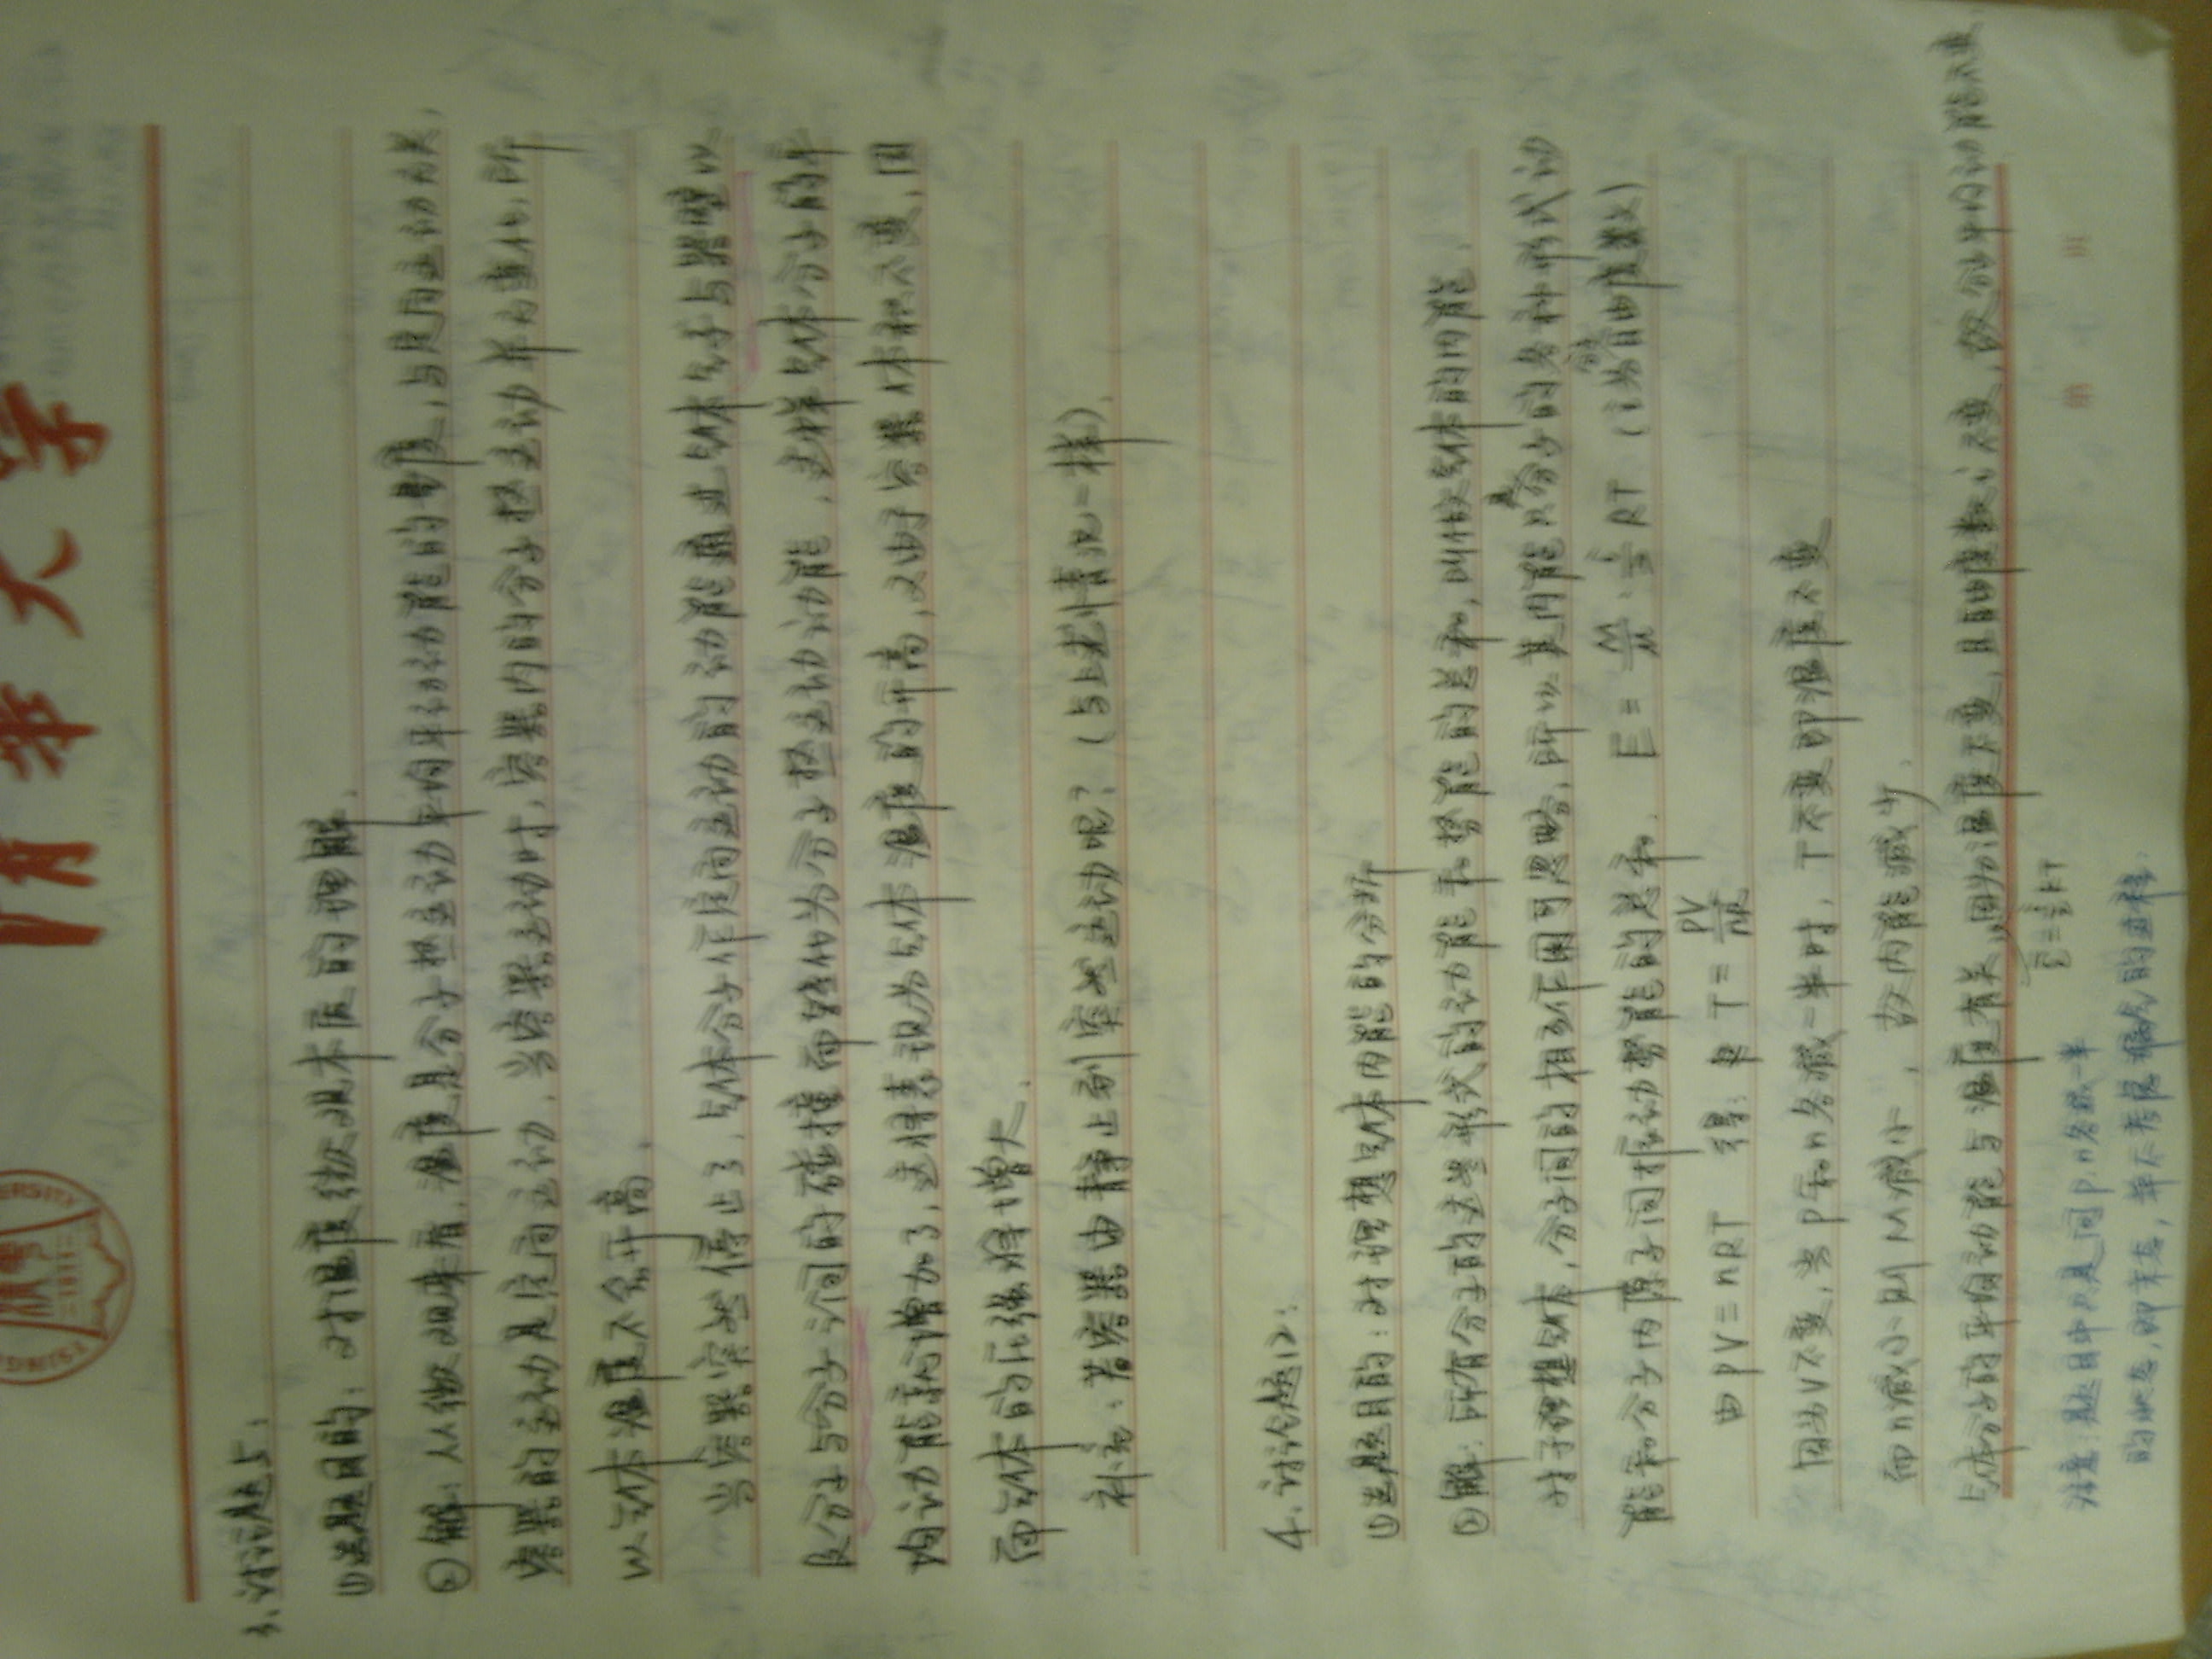 清华大学
3、讨论题5：
①选题目的：对温度微观本质的理解．
②解：从微观来看，温度是分子热运动平均平动动能的量度，与定向运动无关，
容器的运动是定向运动，当容器运动时，容器内的分子热运动并为变化，所
以气体温度不会升高．
当容器突然停止了，气体分子作定向运动的动能通过气体分子与器壁以
及分子与分子之间的碰撞而转化为分子热运动动能，这样气体分子的平
均动能就增加了，这将表现为气体温度的升高，又由于容器体积不变，因
而气体的压强将增大．
补充：若容器由静止到突然运动呢？（与上述情况一样）．
4、讨论题12：
①选题目的：对理想气体内能的分析
②解：所有分子的这些形式的动能和势能的总和，叫做气体的内能．
对于理想气体，分子间的相互作用可忽略，所以其内能是分子的各种形式动
能和分子内原子间振动势能的总和． E = M/μ · i/2 RT （i为自由度数）
由 PV = nRT 得： T = PV/nR
因为V不变，当P和n各减一半时，T不变即温度不变
而n减小则M减小，故内能减少．
气体分子的平均动能与温度有关，因为温度不变，且自由度数i不变，故分子平均动能不变
注意：题目中只是问P、n各减一半
的状态，即末态，并不考虑漏气的过程．